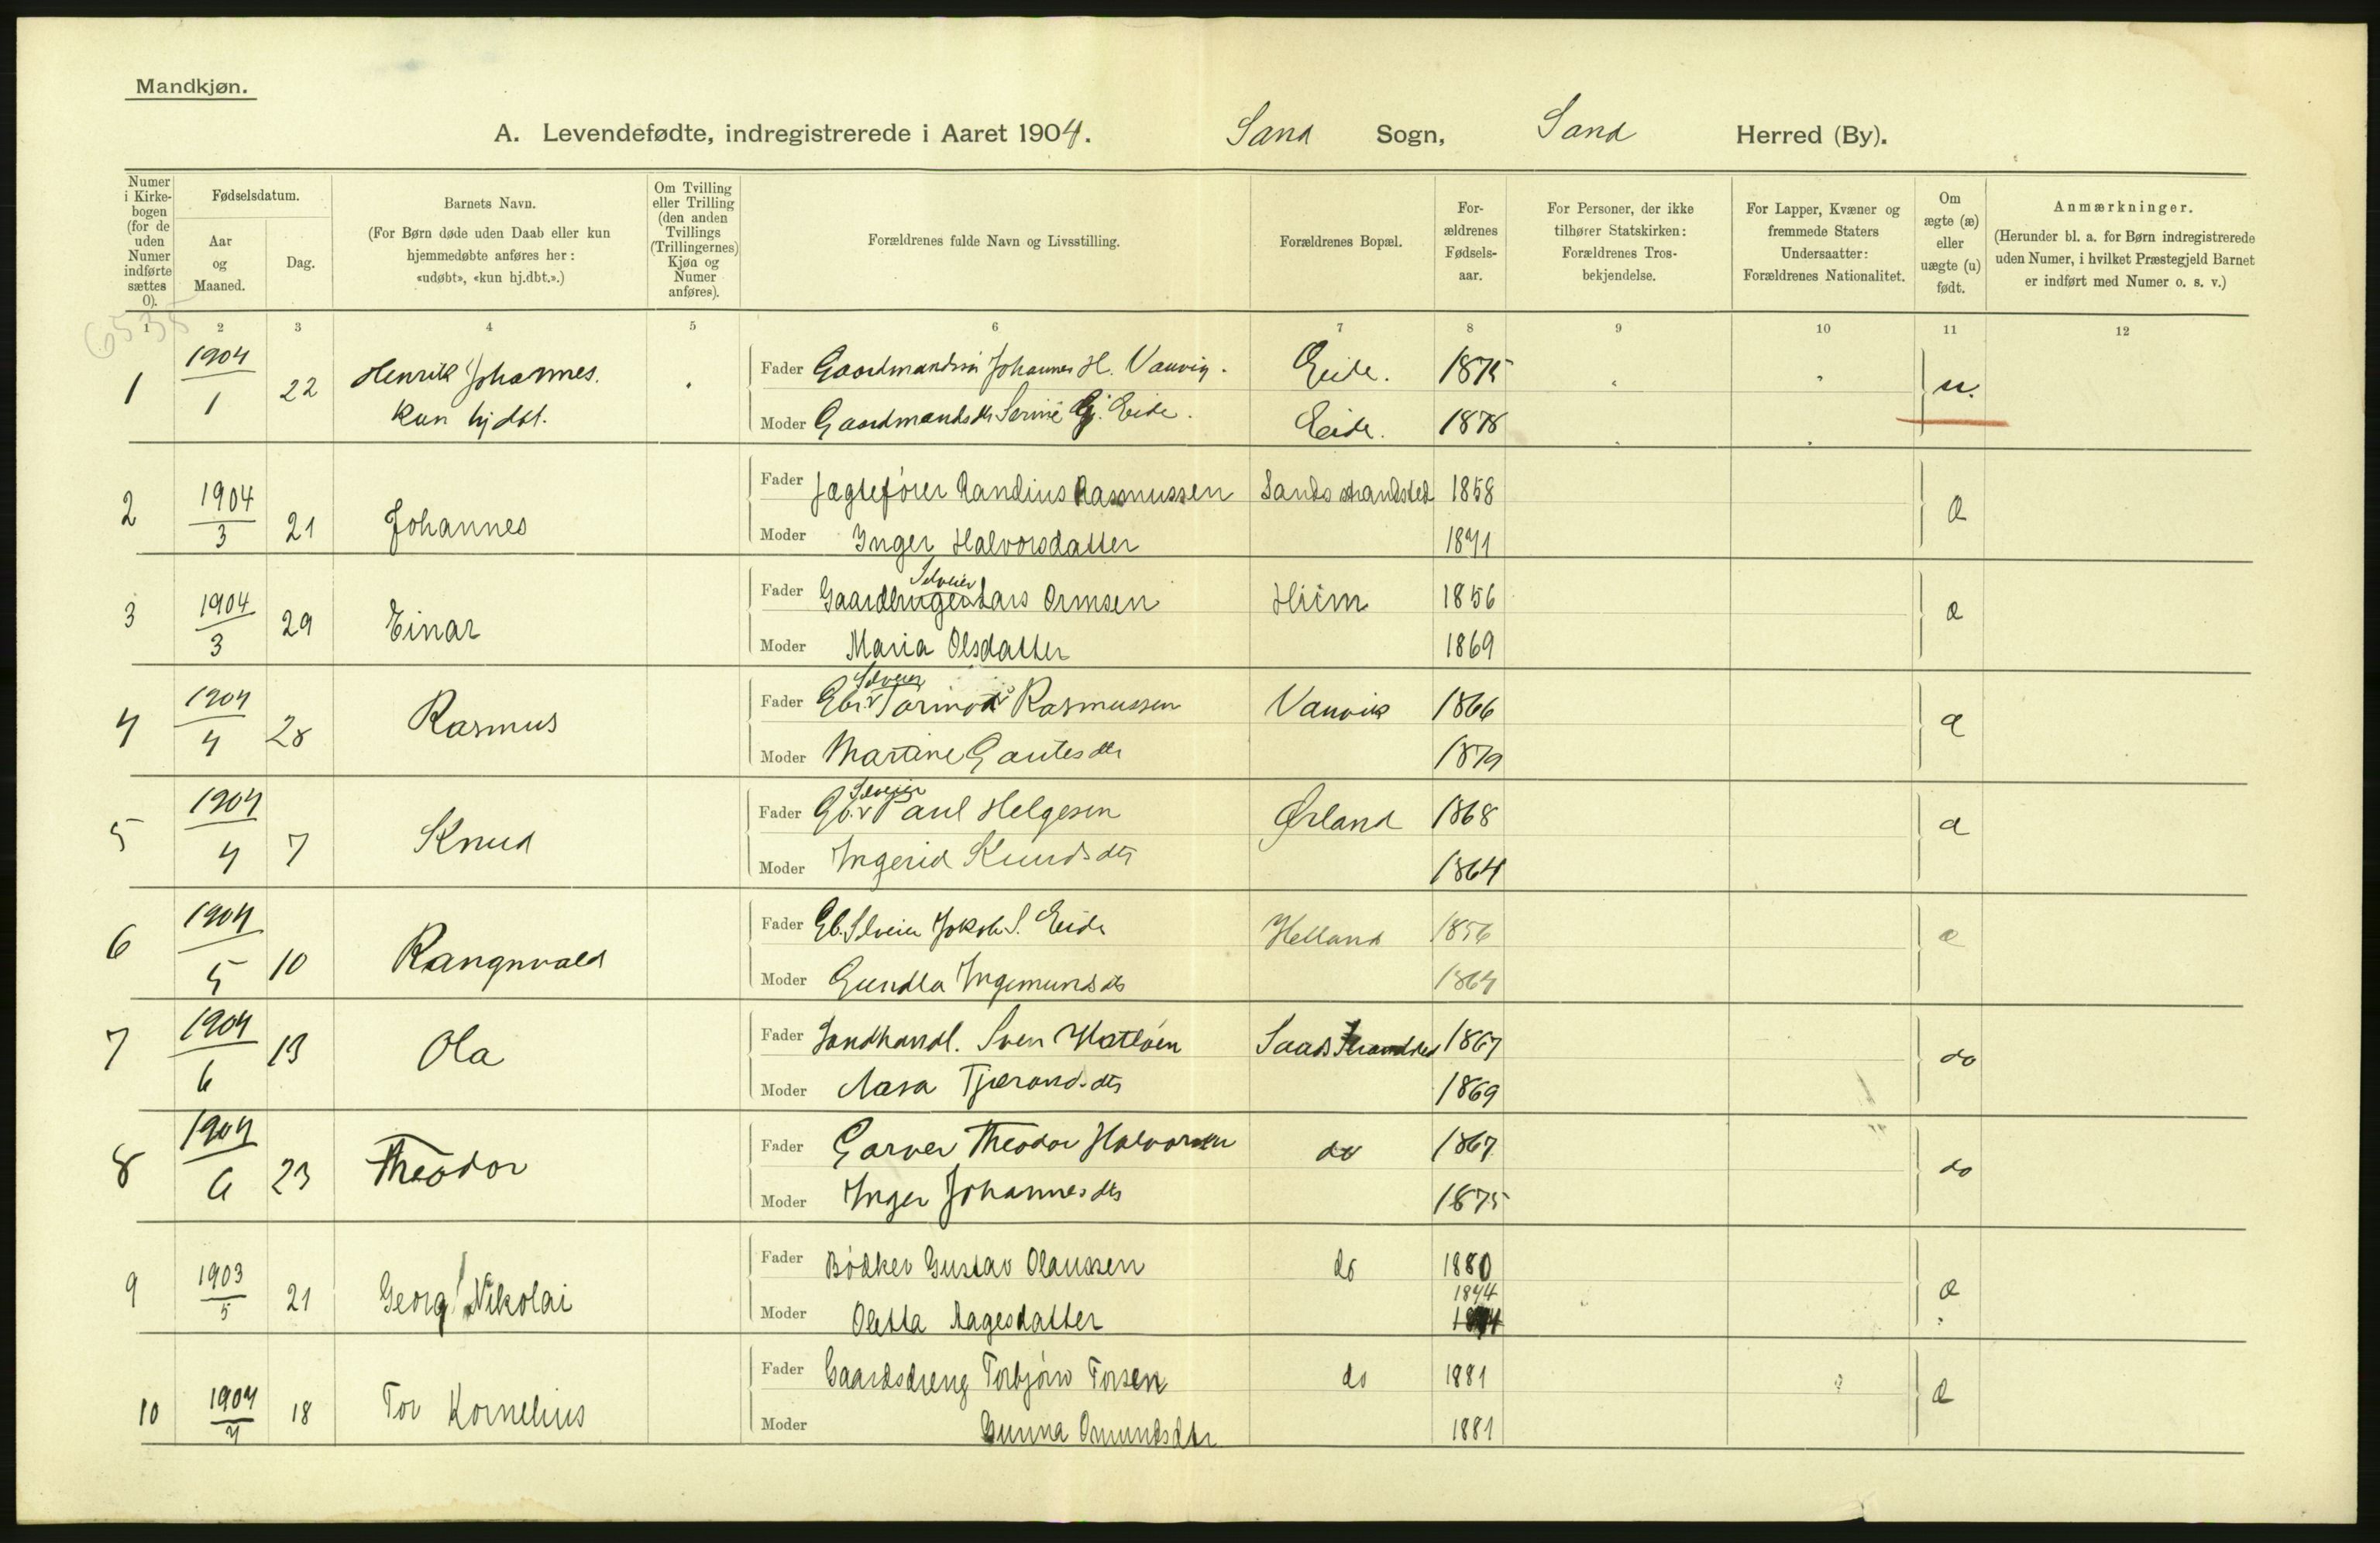 Mandkjøn.
A. Levendefødte, indregistrerede i Aaret 1904. Sand Sogn, Sand Herred (By).
Numer i Kirke-bogen (for de uden Numer indførte sættes 0).
Fødselsdatum.
Aar og Maaned.
Dag.
Barnets Navn.
(For Børn døde uden Daab eller kun hjemmedøbte anføres her: «udøbt», «kun hj.dbt.».)
Om Tvilling eller Trilling (den anden Tvillings (Trillingernes) Kjøn og Numer anføres).
Forældrenes fulde Navn og Livsstilling.
Forældrenes Bopæl.
For-ældrenes Fødsels-aar.
For Personer, der ikke tilhører Statskirken: Forældrenes Tros-bekjendelse.
For Lapper, Kvæner og fremmede Staters Undersaatter: Forældrenes Nationalitet.
Om ægte (æ) eller uægte (u) født.
Anmærkninger.
(Herunder bl. a. for Børn indregistrerede uden Numer, i hvilket Præstegjeld Barnet er indført med Numer o. s. v.)
1 2 3 4 5 6 7 8 9 10 11 12
6535
1 1904/1 22 Henrik Johannes. kun hjdbt.
Fader Gaardmandssøn Johannes H. Vanvig. Eide. 1875 u.
Moder Gaardmandsdtr Serine Gj. Eide. Eide. 1878
2 1904/3 21 Johannes
Fader Jægtefører Randius Rasmussen Sands strandsted 1858 æ
Moder Inger Halvorsdatter 1871
3 1904/3 29 Einar
Fader Gaardbruger Selveier Lars Ormsen Hiim 1856 æ
Moder Maria Olsdatter 1869
4 1904/4 28 Rasmus
Fader Gbr. Selveier Tormod Rasmussen Vanvik 1866 æ
Moder Martine Gautesdtr 1879
5 1904/4 7 Knud
Fader Gb. Selveier Paul Helgesen Ørland 1868 æ
Moder Ingerid Knudsdtr 1864
6 1904/5 10 Rangnvald
Fader Gb. Slveier Jakob S. Eide Helland 1856 æ
Moder Gundla Ingemundsdtr 1864
7 1904/6 13 Ola
Fader Landhandl. Sven Hatløen Sands Strandsted 1867 do
Moder Aasa Tjerandsdtr 1869
8 1904/6 23 Theodor
Fader Garver Theodor Halvorsen do 1867 do
Moder Inger Johannesdtr 1875
9 1903/5 21 Georg Nikolai
Fader Bødker Gustav Olaussen do 1880 æ
Moder Oletta Aagesdatter 1874
10 1904/4 18 Tor Kornelius
Fader Gaardsdreng Torbjørn Torsen do 1881 æ
Moder Gunna Omundsdtr 1881